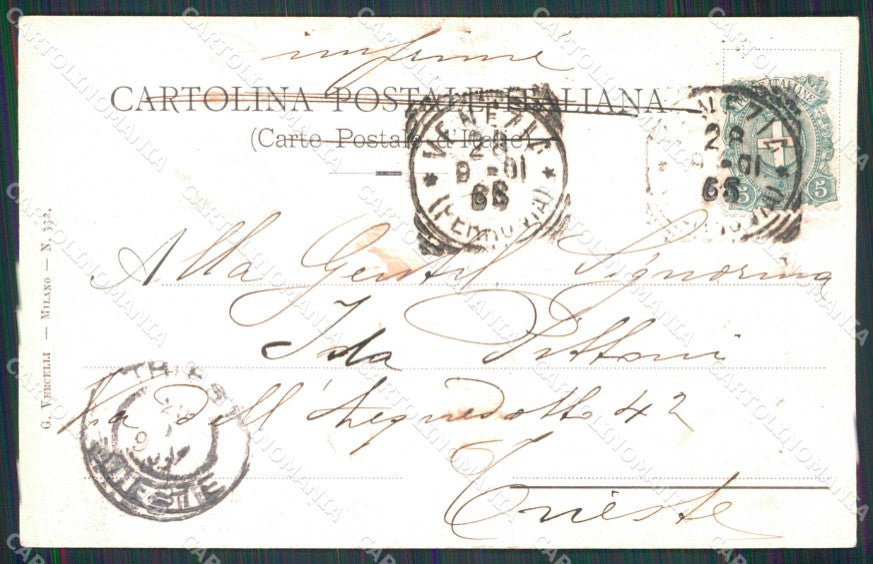 CARTOLINA POSTALE ITALIANA
(Carte Postale d'Italie)
VENEZIA
28
9-01
6S
(FERROVIA)
VENEZIA
28
9-01
6S
5 5
Alla Gentil. Signorina
Ida Pittoni
Via dell'Acquedotto 42
Trieste
G. VERCELLI — MILANO — N. 332.
TRIEST
TRIESTE
CARTOLINOMANIA